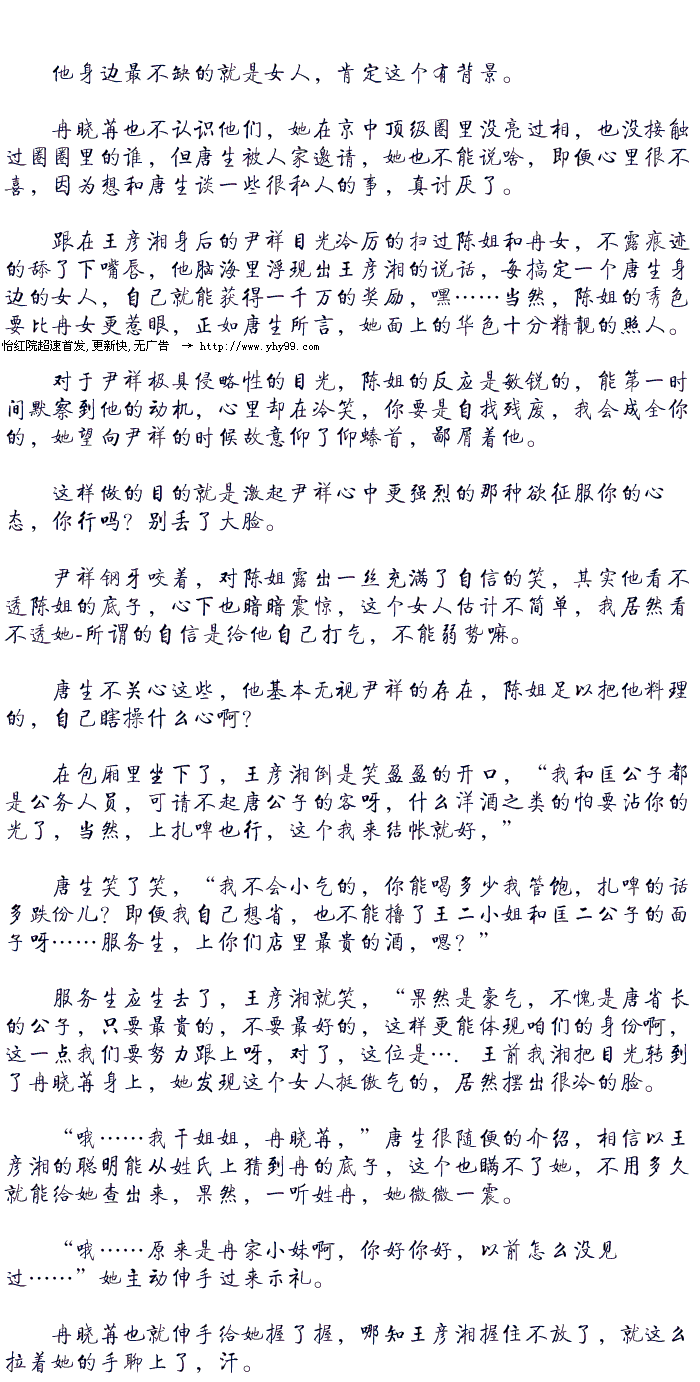 他身边最不缺的就是女人，肯定这个有背景。
冉晓苒也不认识他们，她在京中顶级圈里没亮过相，也没接触
过圈圈里的谁，但唐生被人家邀请，她也不能说啥，即便心里很不
喜，因为想和唐生谈一些很私人的事，真讨厌了。
跟在王彦湘身后的尹祥目光冷厉的扫过陈姐和冉女，不露痕迹
的舔了下嘴唇，他脑海里浮现出王彦湘的说话，每搞定一个唐生身
边的女人，自己就能获得一千万的奖励，嘿……当然，陈姐的秀色
要比冉女更惹眼，正如唐生所言，她面上的华色十分精靓的照人。
怡红院超速首发,更新快,无广告 → http://www.yhy99.com
对于尹祥极具侵略性的目光，陈姐的反应是敏锐的，能第一时
间默察到他的动机，心里却在冷笑，你要是自找残废，我会成全你
的，她望向尹祥的时候故意仰了仰螓首，鄙屑着他。
这样做的目的就是激起尹祥心中更强烈的那种欲征服你的心
态，你行吗？别丢了大脸。
尹祥钢牙咬着，对陈姐露出一丝充满了自信的笑，其实他看不
透陈姐的底子，心下也暗暗震惊，这个女人估计不简单，我居然看
不透她-所谓的自信是给他自己打气，不能弱势嘛。
唐生不关心这些，他基本无视尹祥的存在，陈姐足以把他料理
的，自己瞎操什么心啊？
在包厢里坐下了，王彦湘倒是笑盈盈的开口，“我和匡公子都
是公务人员，可请不起唐公子的客呀，什么洋酒之类的怕要沾你的
光了，当然，上扎啤也行，这个我来结帐就好，”
唐生笑了笑，“我不会小气的，你能喝多少我管饱，扎啤的话
多跌份儿？即便我自己想省，也不能撸了王二小姐和匡二公子的面
子呀……服务生，上你们店里最贵的酒，嗯？”
服务生应生去了，王彦湘就笑，“果然是豪气，不愧是唐省长
的公子，只要最贵的，不要最好的，这样更能体现咱们的身份啊，
这一点我们要努力跟上呀，对了，这位是…．王前我湘把目光转到
了冉晓苒身上，她发现这个女人挺傲气的，居然摆出很冷的脸。
“哦……我干姐姐，冉晓苒，”唐生很随便的介绍，相信以王
彦湘的聪明能从姓氏上猜到冉的底子，这个也瞒不了她，不用多久
就能给她查出来，果然，一听姓冉，她微微一震。
“哦……原来是冉家小妹啊，你好你好，以前怎么没见
过……”她主动伸手过来示礼。
冉晓苒也就伸手给她握了握，哪知王彦湘握住不放了，就这么
拉着她的手聊上了，汗。